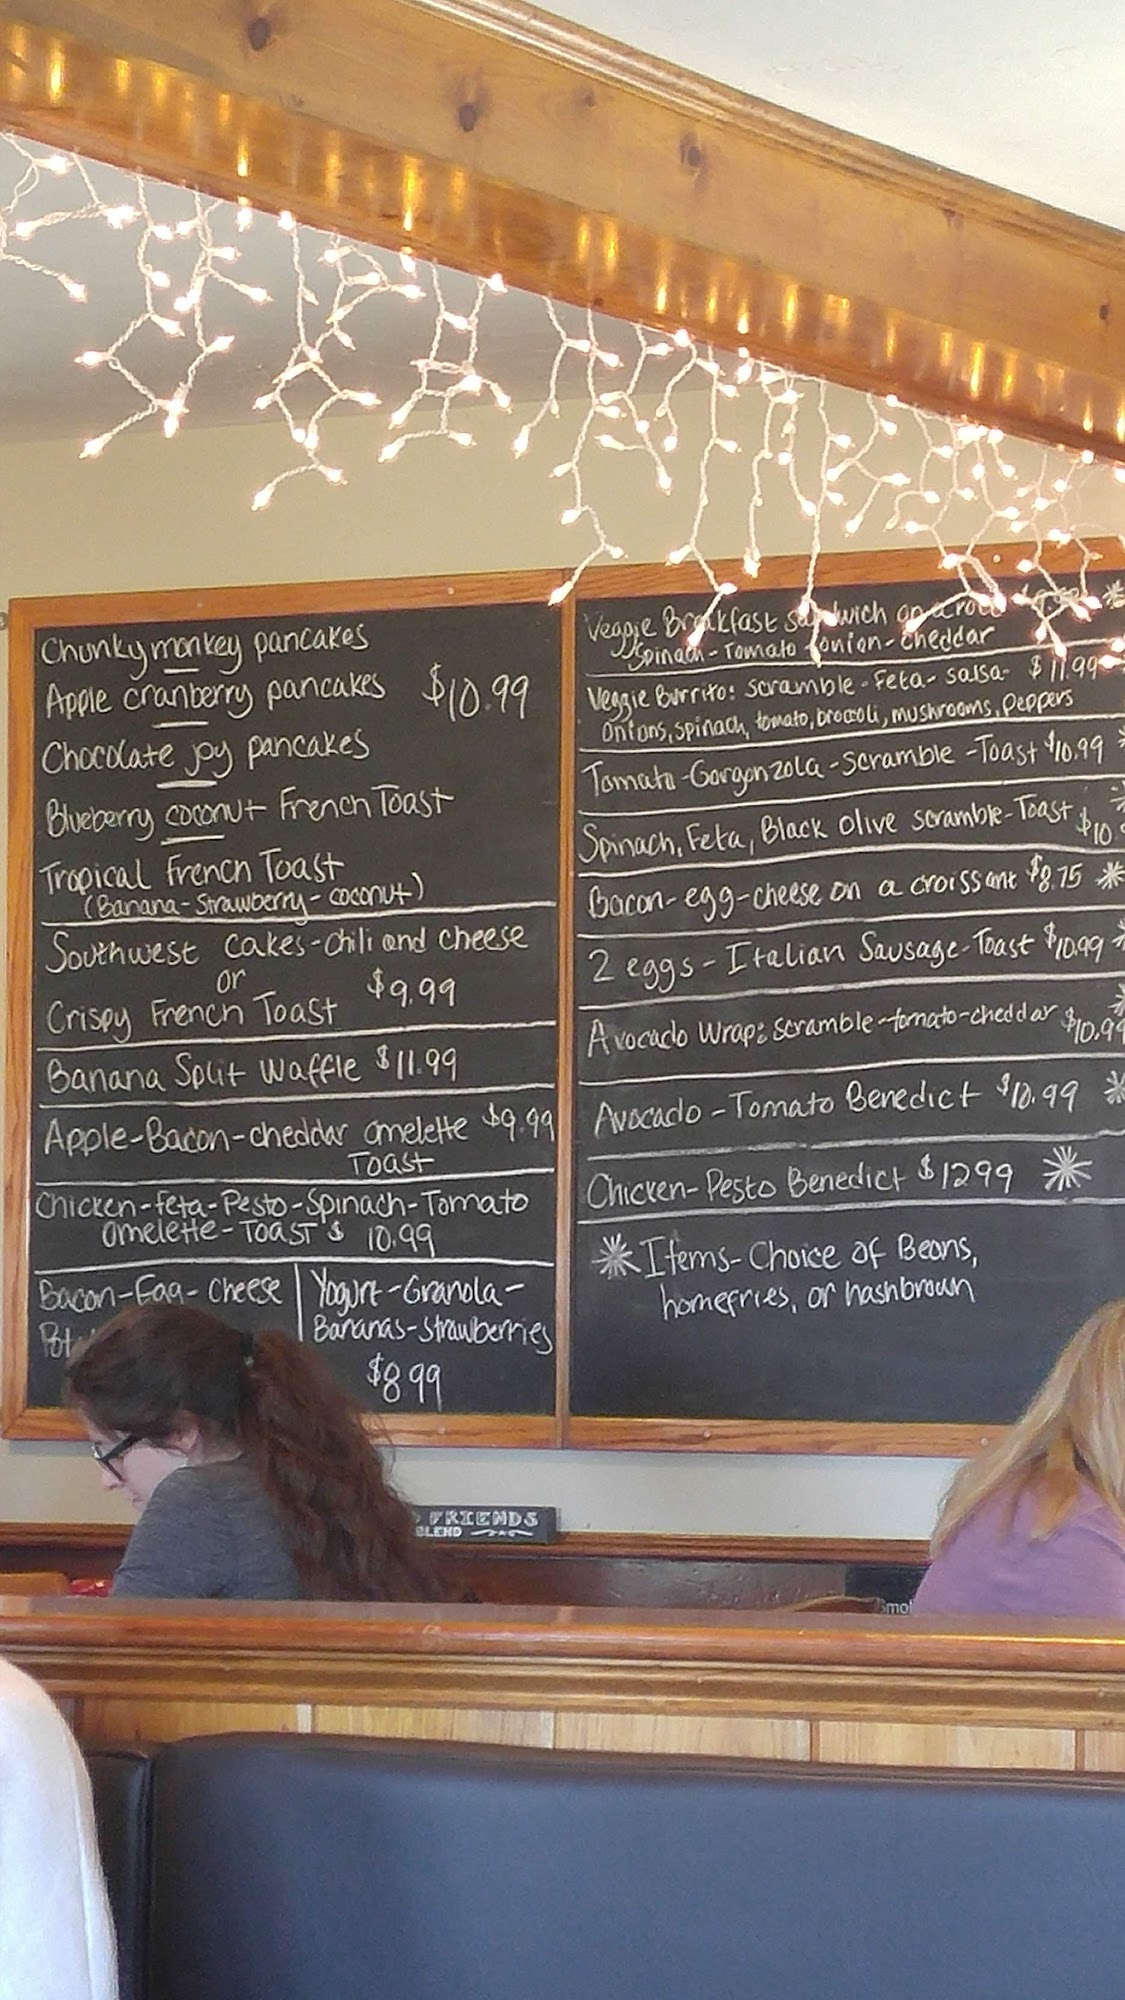 Chunky monkey pancakes
Apple cranberry pancakes $10.99
Chocolate joy pancakes
Blueberry coconut French Toast
Tropical French Toast
(Banana-strawberry-coconut)
Southwest cakes-chili and cheese
or $9.99
Crispy French Toast
Banana Split Waffle $11.99
Apple-Bacon-cheddar omelette $9.99
Toast
Chicken-feta-Pesto-Spinach-Tomato
omelette-Toast $ 10.99
Bacon-Egg-cheese
Yogurt-Granola-
Bananas-strawberries
$8.99
Veggie Breakfast sandwich on a roll
Spinach-Tomato-onion-cheddar
Veggie Burrito: scramble-Feta-salsa- $11.99
onions, spinach, tomato, broccoli, mushrooms, peppers
Tomato-Gorgonzola-scramble-Toast $10.99
Spinach, Feta, Black olive scramble-Toast $10
Bacon-egg-cheese on a croissant $8.75 *
2 eggs-Italian Sausage-Toast $10.99 *
Avocado Wrap: scramble-tomato-cheddar $10.99 *
Avocado-Tomato Benedict $10.99 *
Chicken-Pesto Benedict $1299 *
* Items-Choice of Beans,
homefries, or hashbrown
FRIENDS
BLEND